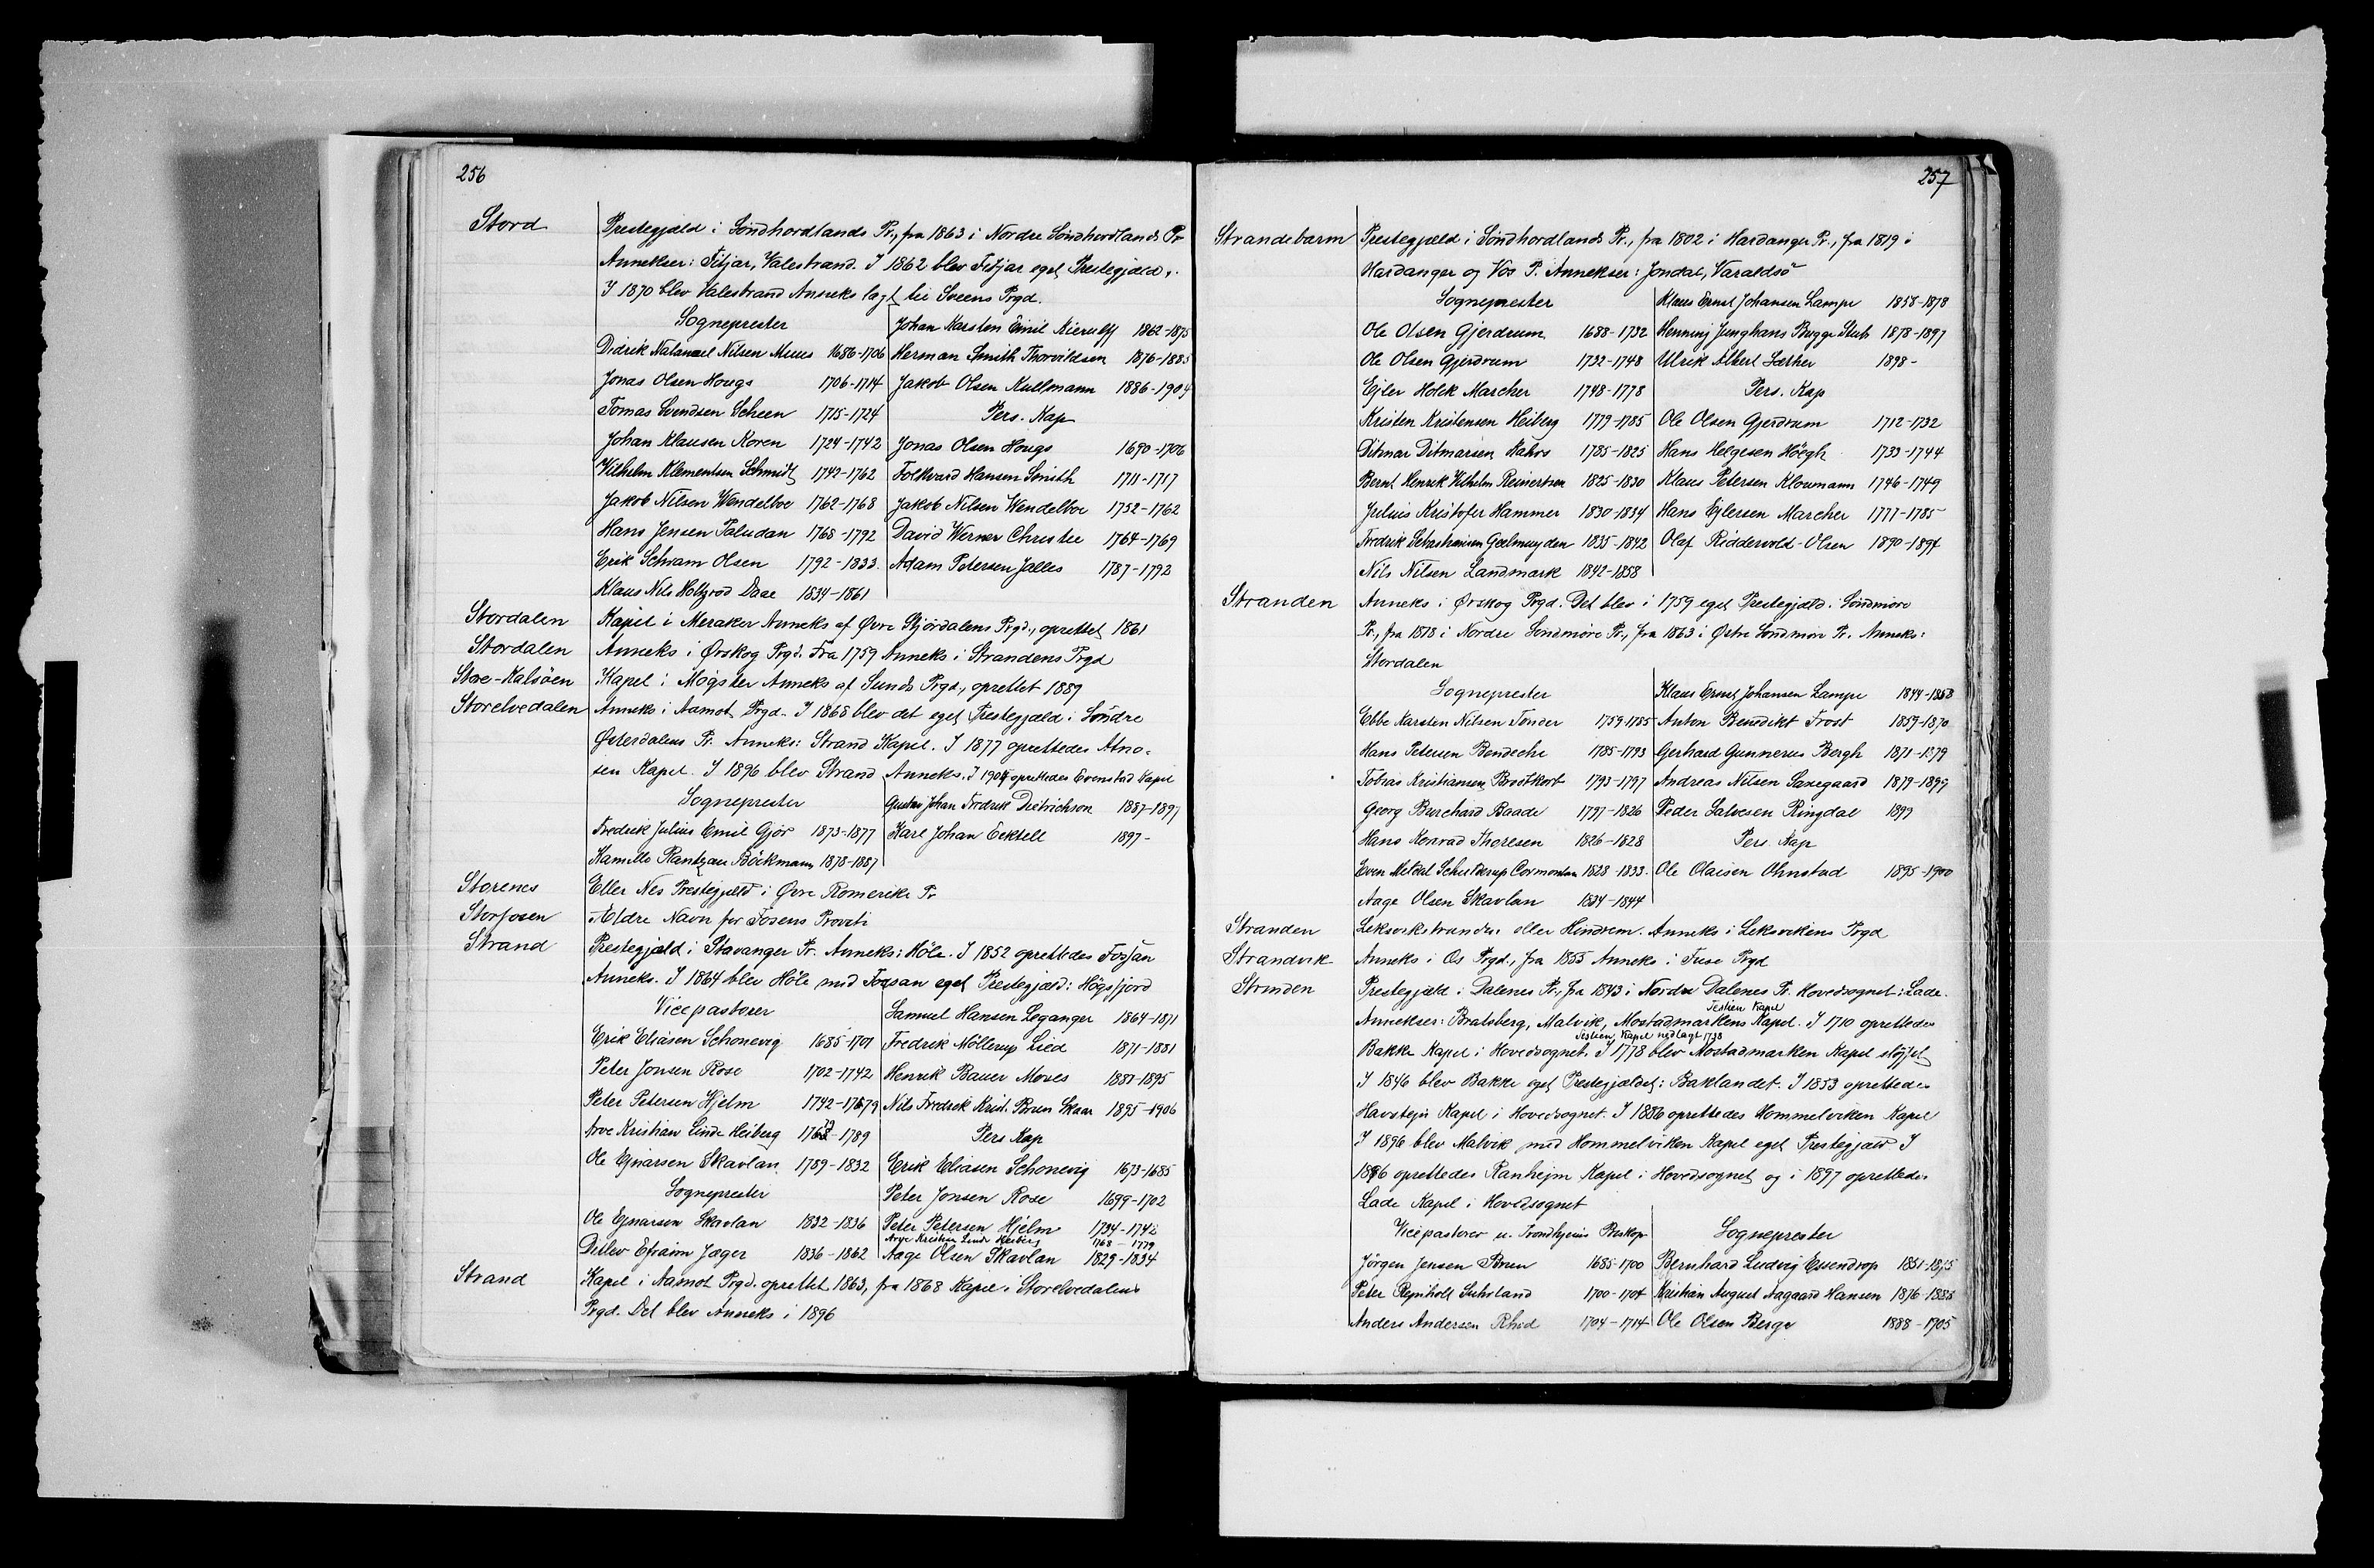 256
Stord
Prestegjæld i Söndhordlands Pr., fra 1863 i Nordre Söndhordlands Pr
Annekser: Fitjar, Valestrand. I 1862 blev Fitjar eget Prestegjæld.
I 1870 blev Valestrand Anneks lagt til Sveens Prgd.
Sogneprester
Didrik Natanael Nilsen Muus 1686-1706
Jonas Olsen Hougs 1706-1714
Tomas Svendsen Scheen 1715-1724
Johan Klausen Koren 1724-1742
Vilhelm Klementsen Schmidt 1742-1762
Jakob Nilsen Wendelboe 1762-1768
Hans Jensen Paludan 1768-1792
Erik Schram Olsen 1792-1833.
Klaus Nils Holtzrod Daae 1834-1861
Johan Karsten Emil Kierulff 1862-1875
Herman Smith Thorvildsen 1876-1885
Jakob Olsen Kullmann 1886-1904
Pers. Kap
Jonas Olsen Hougs 1690-1706
Folkvard Hansen Smith 1711-1717
Jakob Nilsen Wendelboe 1752-1762
David Werner Christie 1764-1769
Adam Petersen Jalles 1787-1792
Stordalen
Kapel i Meraker Anneks af Øvre Stjördalens Prgd., oprettet 1861
Stordalen
Anneks i Ørskog Prgd. Fra 1759 Anneks i Strandens Prgd
Store-Kalsöen
Kapel i Møgster Anneks af Sunds Prgd., oprettet 1889
Storelvedalen
Anneks i Aamot Prgd. I 1868 blev det eget Prestegjæld i Söndre
Østerdalens Pr. Anneks: Strand Kapel. I 1877 oprettedes Atno-
sen Kapel. I 1896 blev Strand Anneks. I 1904 oprettedes Evenstad Kapel
Sogneprester
Fredrik Julius Emil Gjör 1873-1877
Kamillo Rantzau Böckmann 1878-1887
Gustav Johan Fredrik Dietrichson 1887-1897
Karl Johan Ecktell 1897-
Storenes
Eller Nes Prestegjæld i Øvre Romerike Pr
Storfosen
Ældre Navn for Fosens Provsti
Strand
Prestegjæld i Stavanger Pr. Anneks: Höle. I 1852 oprettedes Fossan
Anneks. I 1864 blev Höle med Fossan eget Prestegjæld: Högsfjord
Vicepastorer
Erik Eliasen Schonevig 1685-1701
Peter Jonsen Rose 1702-1742
Peter Petersen Hjelm 1742-1779
Arve Kristian Linde Heiberg 1789
Ole Ejnarsen Skavlan 1789-1832
Sogneprester
Ole Ejnarsen Skavlan 1832-1836
Detlev Efraim Jæger 1836-1862
Samuel Hansen Leganger 1864-1871
Fredrik Möllerup Lied 1871-1881
Henrik Bauer Moves 1881-1895
Nils Fredrik Krist. Brun Skaar 1895-1906
Pers Kap
Erik Eliasen Schonevig 1673-1685
Peter Jonsen Rose 1699-1702
Peter Petersen Hjelm 1734-1742
Arve Kristian Linde Heiberg 1768-1779
Aage Olsen Skavlan 1829-1834
Strand
Kapel i Aamot Prgd. oprettet 1863, fra 1868 Kapel i Storelvedalens
Prgd. Det blev Anneks i 1896
257
Strandebarm
Prestegjæld i Söndhordlands Pr., fra 1802 i Hardanger Pr., fra 1819 i
Hardanger og Vos P. Annekser: Jondal, Varaldsö
Sogneprester
Ole Olsen Gjerdrum 1688-1732
Ole Olsen Gjerdrum 1732-1748
Ejler Holck Marcher 1748-1778
Kristen Kristensen Heiberg 1779-1785
Ditmar Ditmarsen Kahrs 1785-1825
Bernt Henrik Vilhelm Reinertsen 1825-1830
Julius Kristofer Hammer 1830-1834
Fredrik Sebastiansen Geelmuyden 1835-1842
Nils Nilsen Landmark 1842-1858
Klaus Ernst Johansen Lampe 1858-1878
Henning Junghans Bugge Stub 1878-1897
Ulrik Albert Sæther 1898-
Pers. Kap
Ole Olsen Gjerdrum 1712-1732
Hans Helgesen Höegh 1733-1744
Klaus Petersen Kloumann 1746-1749
Hans Ejlersen Marcher 1777-1785
Olaf Riddervold-Olsen 1890-1894
Stranden
Anneks i Ørskog Prgd. Det blev i 1759 eget Prestegjæld i Söndmöre
Pr., fra 1818 i Nordre Söndmöre Pr., fra 1863 i Østre Söndmöre Pr. Anneks:
Stordalen
Sogneprester
Ebbe Karsten Nilsen Tönder 1759-1785
Hans Petersen Bendeche 1785-1793
Tobias Kristiansen Brodtkorb 1793-1797
Georg Burchard Baade 1797-1826
Hans Konrad Thoresen 1826-1828
Even Meldal Schjelderup Cormontan 1828-1833.
Aage Olsen Skavlan 1834-1844
Klaus Ernst Johansen Lampe 1844-1858
Anton Benedikt Frost 1859-1870
Gerhard Gunnerus Bergh 1871-1879
Andreas Nilsen Saxegaard 1879-1899
Peder Salvesen Ringdal 1899
Pers. Kap
Ole Olaisen Ohnstad 1895-1900
Stranden
Leksvikstranden eller Hindrem. Anneks i Leksvikens Prgd
Strandvik
Anneks i Os Prgd., fra 1855 Anneks i Fuse Prgd
Strinden
Prestegjæld i Dalenes Pr., fra 1843 i Nordre Dalenes Pr. Hovedsognet: Lade.
Jestien Kapel
Annekser: Bratsberg, Malvik, Mostadmarkens Kapel. I 1710 oprettedes
Jestien Kapel nedlagt 1738
Bakke Kapel i Hovedsognet. I 1778 blev Mostadmarken Kapel slöjfet
I 1846 blev Bakke eget Prestegjældet: Baklandet. I 1853 oprettedes
Havstejn Kapel i Hovedsognet. I 1886 oprettedes Hommelviken Kapel
I 1896 blev Malvik med Hommelviken Kapel eget Prestegjæld I
1896 oprettedes Ranhejm Kapel i Hovedsognet og i 1897 oprettedes
Lade Kapel i Hovedsognet
Vicepastorer u. Trondhjems Biskop
Jörgen Jensen Brun 1685-1700
Peter Rejnholt Suhrland 1700-1704
Anders Andersen Rhod 1704-1714
Sogneprester
Bernhard Ludvig Essendrop 1851-1875
Kristian August Aagaard Hansen 1876-1888
Ole Olsen Berge 1888-1905